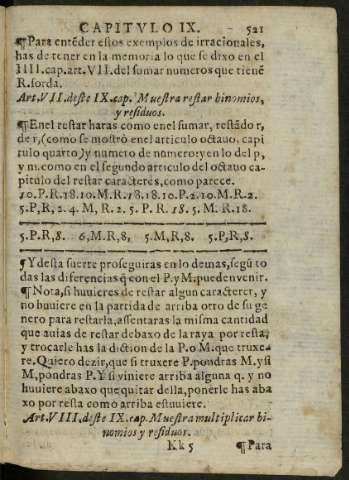 CAPITVLO IX. 521
¶Para entẽder estos exemplos de irracionales,
has de tener en la memoria lo que se dixo en el
IIII.cap.art.VII.del sumar numeros que tienẽ
R.sorda.
Art.VII.deste IX.cap. Muestra restar binomios,
y residuos.
¶Enel restar haras como enel sumar, restãdo r,
de r, (como se mostrò enel articulo octauo, capi
tulo quarto) y numero de numero: y en lo del p,
y m.como en el segundo articulo del octauo ca-
pitulo del restar caracteres, como parece.
10.P.R.18.10.M.R.18.18.10.P.2.10.M.R.2.
5.P,R,2.4.M,R.2.5.P.R.18.5.M.R.18.
5.P.R,8. 6,M.R,8, 5.M,R,8. 5.P,R,8.
¶Y desta suerte proseguiras en lo demas, segũ to
das las diferencias q̃ con el P.y M.pueden venir.
¶Nota, si huuieres de restar algun caracterer, y
no huuiere en la partida de arriba otro de su ge
nero para restarla, assentaras la misma cantidad
que auias de restar debaxo de la raya por resta,
y trocarle has la diction de la P.o M.que truxe-
re. Quiero dezir, que si truxere P.pondras M.y si
M, pondras P.Y si viniere arriba alguna q. y no
huuiere abaxo que quitar della, ponerle has aba
xo por resta como arriba estuuiere.
Art.VIII.deste IX.cap.Muestra multiplicar bi-
nomios y residuos.
Kk 5 ¶Para